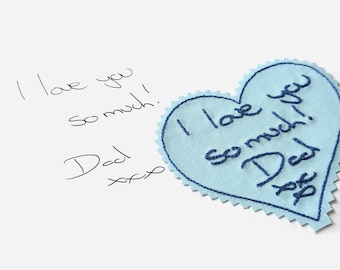 I love you
so much!
Dad
xxx
I love you
so much!
Dad
xxx